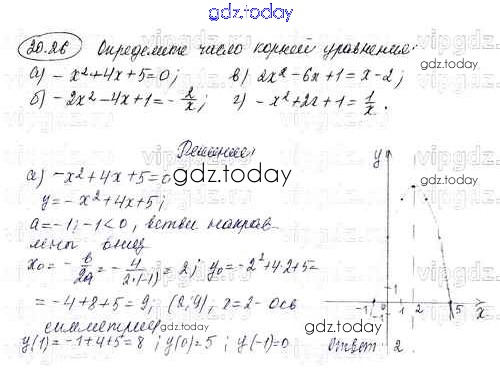 gdz.today
20.26 Определите число корней уравнения:
а) -x²+4x+5=0; в) 2x²-6x+1=x-2;
б) -2x²-4x+1=-2/x; г) -x²+2x+1=1/x.
Решение
gdz.today
а) -x²+4x+5=0
y=-x²+4x+5;
a=-1; -1<0, ветви направ-
лены вниз
x₀=-b/2a=-4/2·(-1)=2; y₀=-2²+4·2+5=
=-4+8+5=9; (2;9), x=2- ось
симметрии
y(1)=-1+4+5=8; y(0)=5; y(-1)=0
y
1
-1 0 1 2 5 x
Ответ: 2.
gdz.today
gdz.today
gdz.today
gdz.today
gdz.today
vipgdz